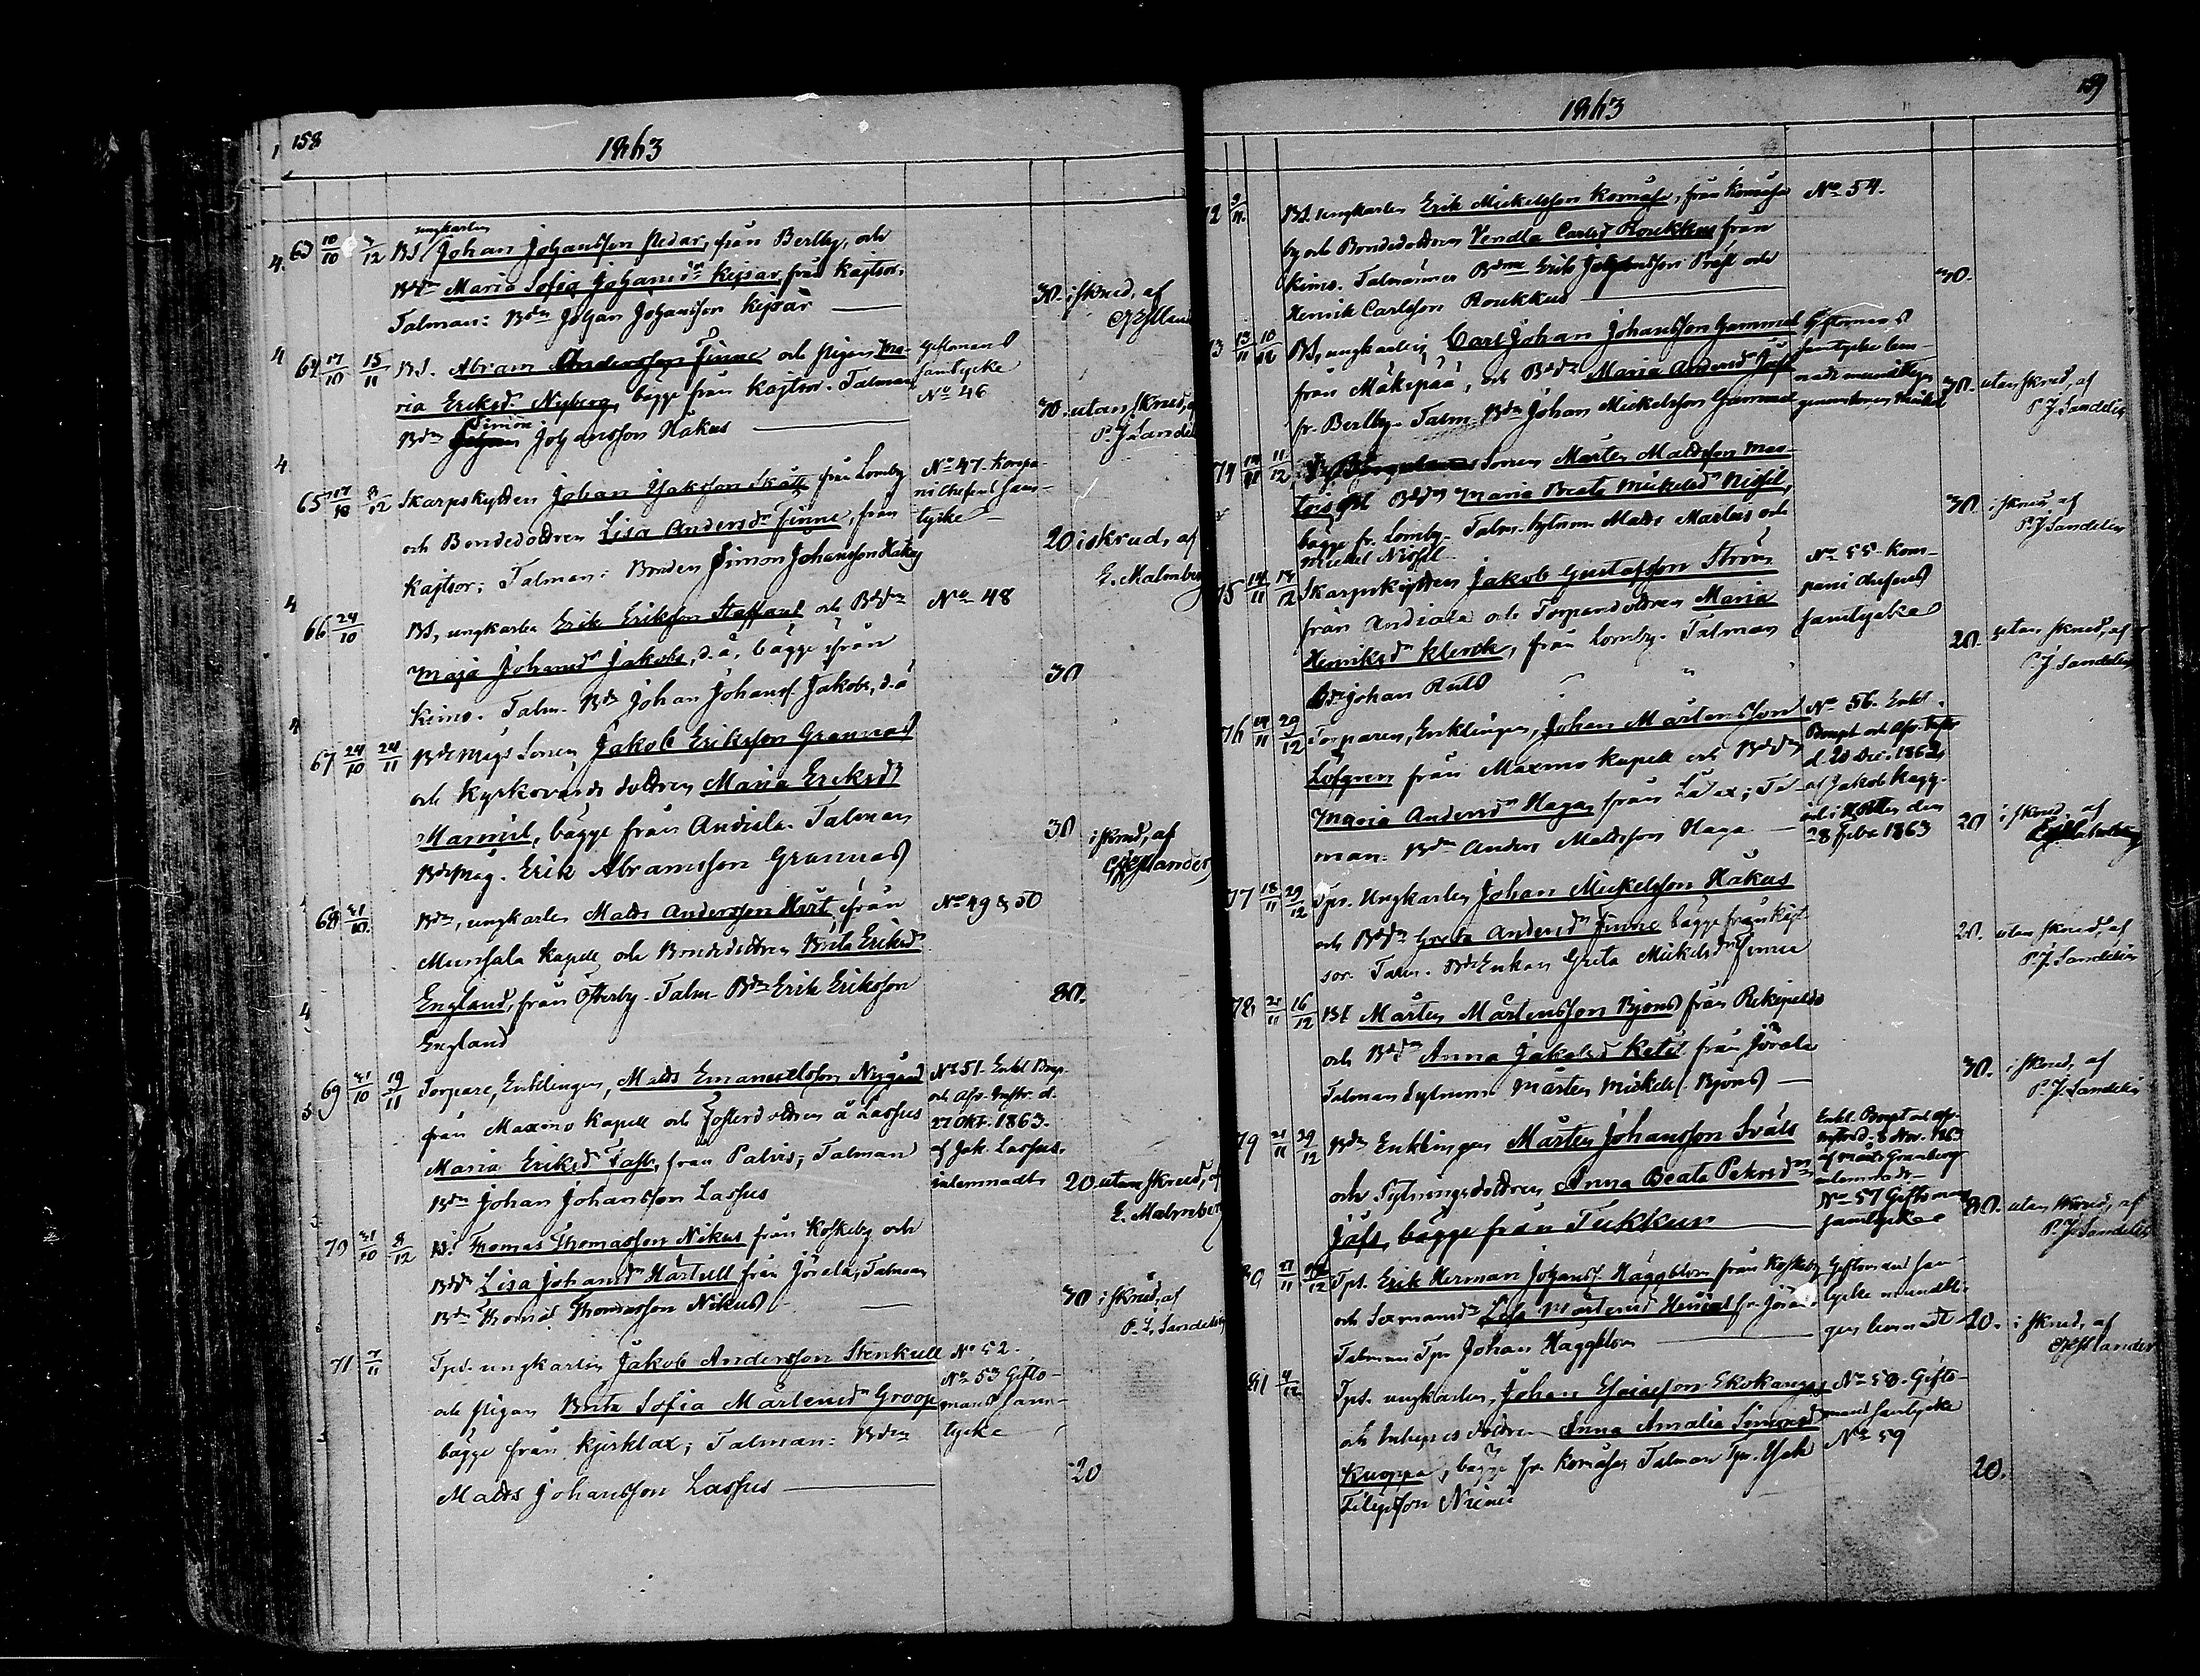 158
1863
63 10/10 9/12 BS. ungkarlen Johan Johansson Pedar, från Bertby, och
Bdr Maria Sofia Johansdr Kejsar från Kajtsor.
Talman: Bdn Johan Johansson Kejsar
30. i skrud, af
64 17/10 15/11 BS. Abram Andersson Finne och pigan Ma-
ria Eriksdr Nyberg, bägge från Kajtsor. Talman
Bdn Simon Johansson Hakus
Giftomans
samtycke
No 46
30. utan skrud, af
P. J. Sandelin
65 17/10 8/12 Skarpskytten Johan Isaksson Skått från Lomby
och Bondedottren Lisa Andersdr Finne, från
Kajtsor; Talman: Bonden Simon Johansson Hakus
No 47. Kompa-
ni Chefens sam-
tycke
20 i skrud, af
E. Malmberg
66 24/10 BS, ungkarlen Erik Eriksson Staffans och Bdr
Maja Johansdr Jakobs, d.ä, bägge ifrån
Kimo. Talm. Bdn Johan Johanss. Jakobs, d.ä
No 48
30
67 24/10 24/11 Bdemågs Sonen Jakob Eriksson Grannas
och Kyrkovärds dottren Maria Eriksdr
Mannil, bägge från Andiala. Talman
Bdemåg. Erik Abramsson Grannas
30 i skrud, af
68 31/10 Bdn, ungkarlen Matts Andersson Hirt ifrån
Munsala Kapell och Bondedottren Brita Eriksdr
England, från Österby. Talm. Bdn Erik Eriksson
England
No 49 & 50
30.
69 31/10 19/11 Torpare, Enklingen, Matts Emanuelsson Nygård
från Maxmo Kapell och Fosterdottren å Lassus
Maria Eriksdr Fast, från Palvis; Talman
Bdn Johan Johansson Lassus
No 51. Enkl. Boup.
och Afv. Instr. d.
27 Okt. 1863.
af Jak. Lassus.
inlemnadt.
20 utan skrud, af
E. Malmberg
70 31/10 8/12 BS. Thomas Thomasson Nikus från Koskeby och
Bdr Lisa Johansdr Hartull från Jörala; Talman
Bdn Thomas Thomasson Nikus
30 i skrud, af
P. J. Sandelin
71 7/11 Tps. ungkarlen Jakob Andersson Stenkull
och pigan Brita Sofia Mårtensdr Groop
bägge från Kjerklax; Talman: Bdn
Matts Johansson Lassus
No 52.
No 53 Gifto-
mans sam-
tycke
20
159
1863
BS. ungkarlen Erik Mickelsson Komåsa, från Komåsa
by och Bondedottren Vendla Carlsdr Roukkus från
Kimo. Talmänner Bdn Erik Johansson Präst och
Henrik Carlsson Roukkus
No 54.
30.
73 13/11 10/12 BS, ungkarlen Carl Johan Johansson Gammal
från Mäkipää, och Bdr Maria Andersdr
fr. Bertby. Talm. Bdn Johan Mickelsson Gammal
Giftomans
samtycke lem-
nadt muntligen
30. utan skrud, af
P. J. Sandelin
74 14/11 11/12 Sonen Mårten Mattsson Mar-
tois och Bdr Maria Beata Mickelsdr Nissil,
bägge fr. Lomby. Talm. Sytnm. Matts Martus och
Mickel Nissil.
30. i skrud af
P. J. Sandelin
75 14/11 18/12 Skarpskytten Jakob Gustafsson Ström
från Andiala och Torparedottren Maria
Henriksdr Klerck, från Lomby. Talman
Bdn Johan Ruts
No 55. Kom-
pani chefens
samtycke
20. utan skrud, af
P. J. Sandelin
76 14/11 29/12 Torparen, Enklingen, Johan Mårtensson
Löfgren från Maxmo Kapell och Bdr
Maria Andersdr Haga, från Lålax; Tal-
man. Bdn Anders Mattsson Haga
No 56. Enkl.
Boupt och Afv. Instr.
d. 20 Dec. 1862,
af Jakob Hagg-
28 Febr 1863
20 i skrud, af
77 18/11 29/12 Tps. Ungkarlen Johan Mickelsson Hakus
och Bdr Greta Andersdr Finne bägge från Kajt-
sor. Talm. Bdenkan Greta Mickelsdr Finne
20. utan skrud, af
P. J. Sandelin
78 21/11 16/12 BS. Mårten Mårtensson Bjons från Rekipelto
och Bdr Anna Jakobsdr Kets från Jörala
Talman Sytnmn Mårten Mickels. Bjons
30. i skrud, af
P. J. Sandelin
79 21/11 29/12 Bdn Enklingen Mårten Johansson Sväls
och Sytningsdottren Anna Beata Petersdr
Jåfs, bägge från Tukkur
Enkl. Boupt och afv.
instr. d. 6 Nov. 1863
af Matts Granberg
inlemnadt
No 57 Giftomans
samtycke
30. utan skrud, af
P. J. Sandelin
Tps. Erik Herman Johans. Häggblom från Koskeby
och Sexmansdr Lisa Mårtensdr fr. Jörala
Talman Tpn Johan Häggblom
Giftomans sam-
tycke muntli-
gen lemnadt
20. i skrud, af
81 4/12 Tps. ungkarlen, Johan Esaiasson Ekokangas
och Inhyses dottren Anna Amalia Simonsdr
Knoppa, bägge fr. Komåsa. Talman Tpn. Isak
Filipsson Niemi
No 58. Gifto-
mans samtycke
No 59
20.